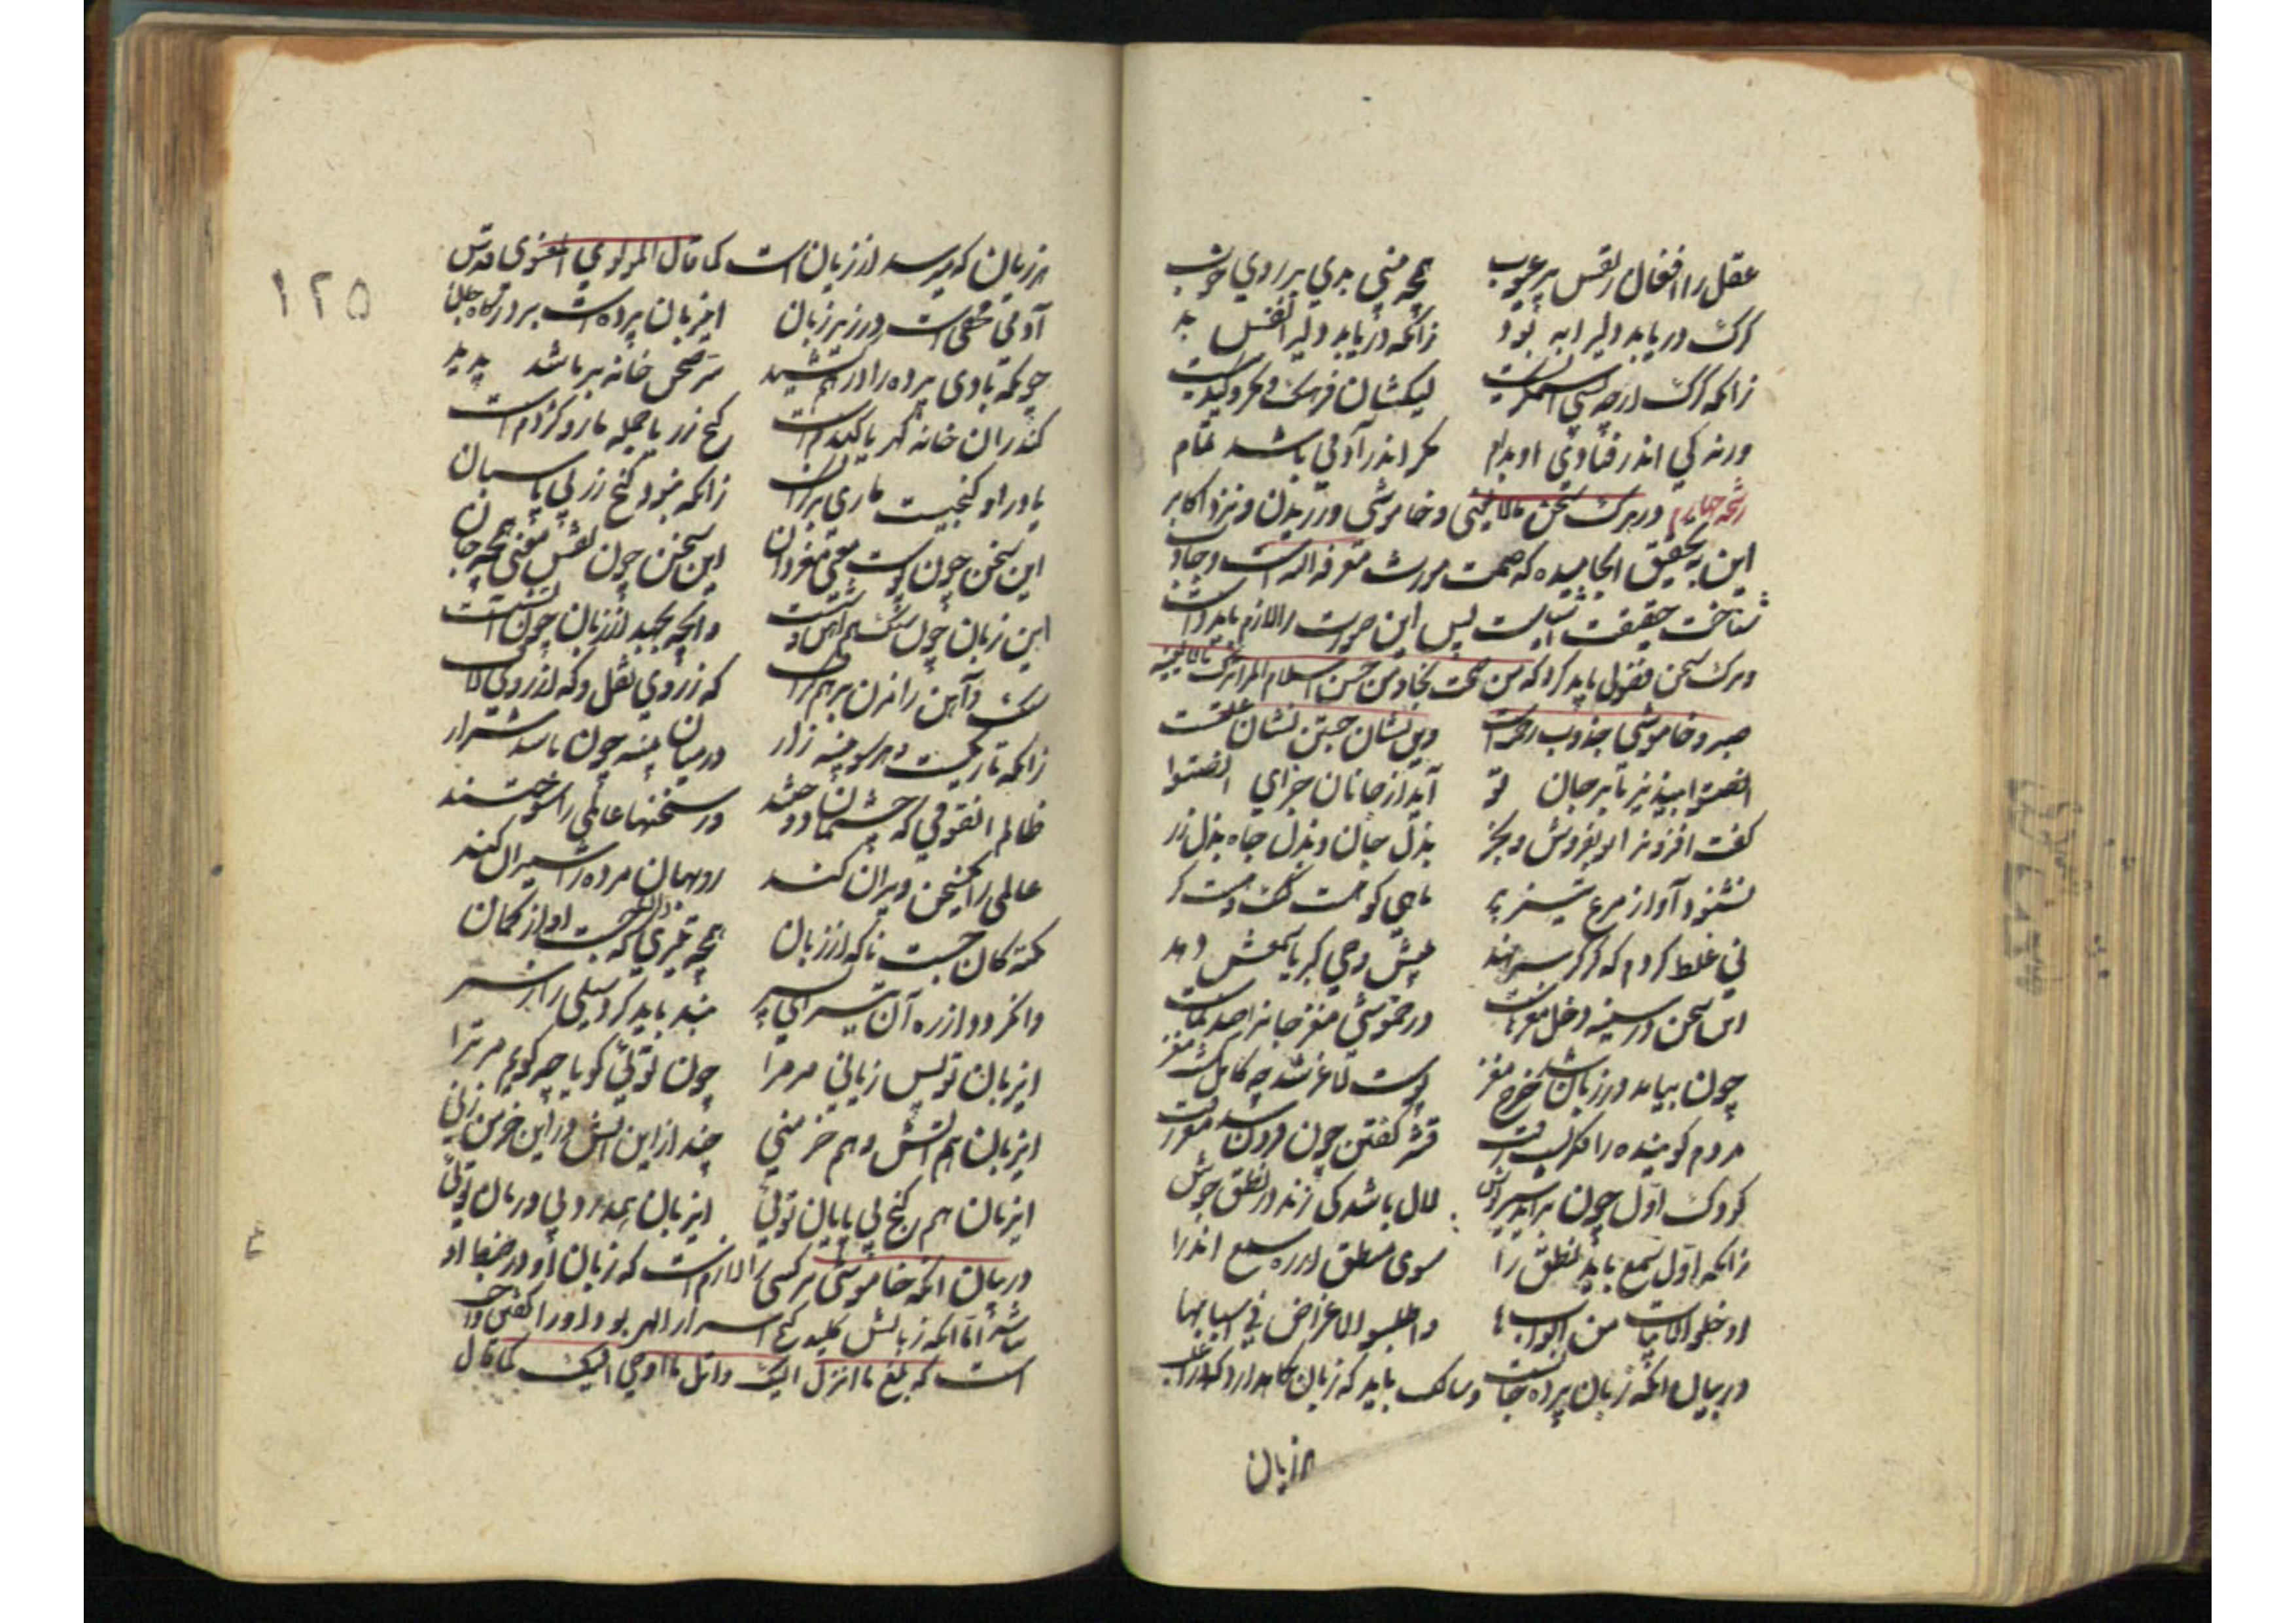 عقل را افغان ز نفس پر عیوب همچو بینی بدی بر روی خوب
گرگ دریابد ولی را به بود زانکه دریابد ولی را نفس بد
زانکه گرگ ارچه که بس استمگریست لیکشان فرهنگ و مکر و کید نیست
ورنه کی اندر فتادی او بدام مکر اندر آدمی باشد تمام
رشحه چهارم در ترک سخن مالایعنی و خاموشی ورزیدن و نزد اکابر
این به تحقیق انجامیده که صمت مورث معرفه الله است و
شناخت حقیقت پس این صورت را لازم باید داشت
و ترک سخن فضول باید کرد که من صمت نجا و من حسن اسلام المرء ترک مالایعنیه
صبر و خاموشی جذوب رحمتست وین نشان جستن نشان علتست
انصتوا بپذیر تا بر جان تو آید از جانان جزای انصتوا
گفت افزونرا تو بفروش و بخر بذل جان و بذل جاه و بذل زر
نشنود آواز مرغ
نی غلط کردم که گر کر سر نهد پیش وحی کبریا سمعش دهد
این سخن در سینه دخل مغزهاست در خموشی مغز جانرا صد نماست
چون بیامد در زبان شد خرج مغز
مردم گوینده را فکرست
کودک اول چون بزاید شیرنوش لال باشد کی زند در نطق جوش
زانکه اول سمع باید نطق را سوی منطق از ره سمع اندرا
ادخلوا الابیات من ابوابها واطلبوا الاغراض فی اسبابها
در بیان آنکه زبان پرده جانست و سالک باید که زبان نگاهدارد که
هر زیان
هر زیان که میرسد از زبان است کما قال المولوی المعنوی قدس
۱۲۵
آدمی مخفیست در زیر زبان این زبان پرده است بر درگاه جان
چونکه بادی پرده را در هم کشید سر صحن خانه بر ما شد پدید
کاندران خانه گهر یا گندم است گنج زر یا جمله مار و کژدم است
یا در او گنجیست ماری بر کران زانکه نبود گنج زر بی پاسبان
این سخن چون پوست معنی مغز دان این سخن چون نقش معنی همچو جان
این زبان چون سنگ هم آهن وشست وانچه بجهد از زبان چون آتشست
سنگ و آهن را مزن بر هم گزاف که ز روی نقل و گه از روی لاف
زانکه تاریکست و هر سو پنبه زار در میان پنبه چون باشد شرار
ظالم آنقومی که چشمان دوختند در سخنها عالمی را سوختند
عالمی را یک سخن ویران کند روبهان مرده را شیران کند
نکته کان جست ناگه از زبان همچو تیری دان که جست او از کمان
وانگردد از ره آن تیر ای پسر بند باید کرد سیلی را ز سر
ای زبان تو بس زیانی مر مرا چون توئی گویا چه گویم مر ترا
ای زبان هم آتش و هم خرمنی چند از این آتش در این خرمن زنی
ای زبان هم گنج بی پایان توئی ای زبان هم درد بی درمان توئی
در بیان آنکه خاموشی هر کسی را لازم است که زبان او در ضبط او
باشد اما آنکه زبانش کلید گنج اسرار الهی بود او را گفتن واجب
است که بلغ ما انزل الیک واتل ما اوحی الیک کما قال